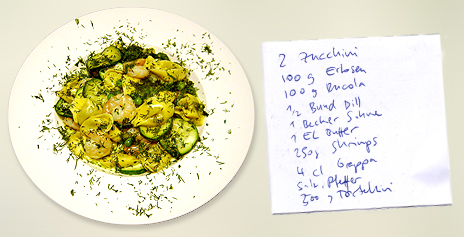 2 Zucchini
100 g Erbsen
100 g Rucola
1/2 Bund Dill
1 Becher Sahne
1 EL Butter
250g Shrimps
4 cl Grappa
Salz, Pfeffer
500 g Tortellini